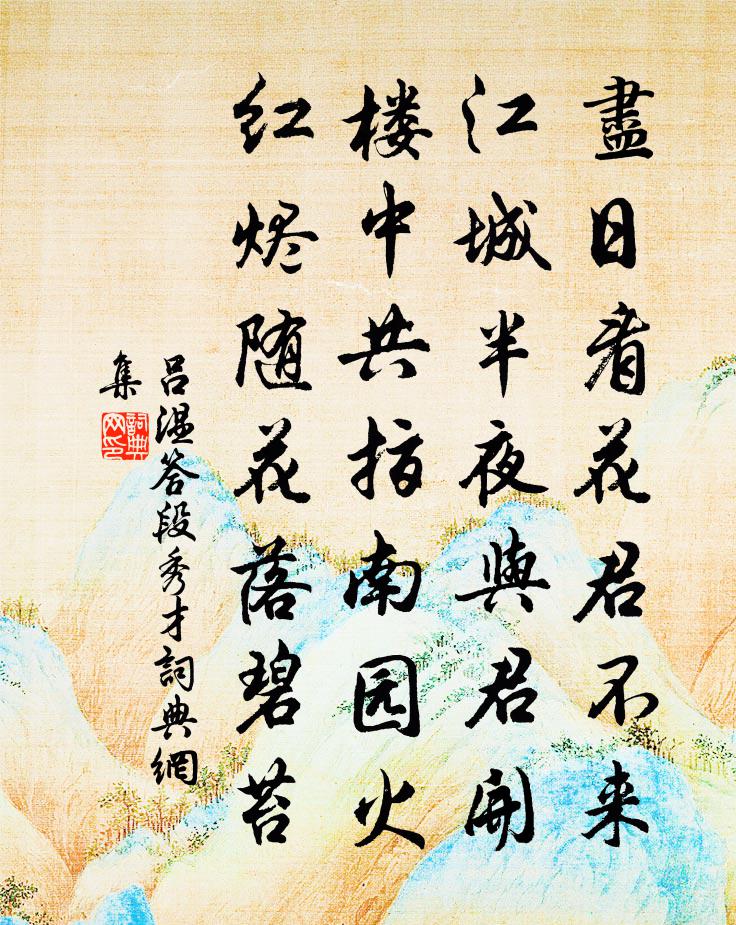 盡日看花君不来
江城半夜與君開
楼中共指南园火
红烬随花落碧苔
吕温答段秀才詞典網
集
詞典网印